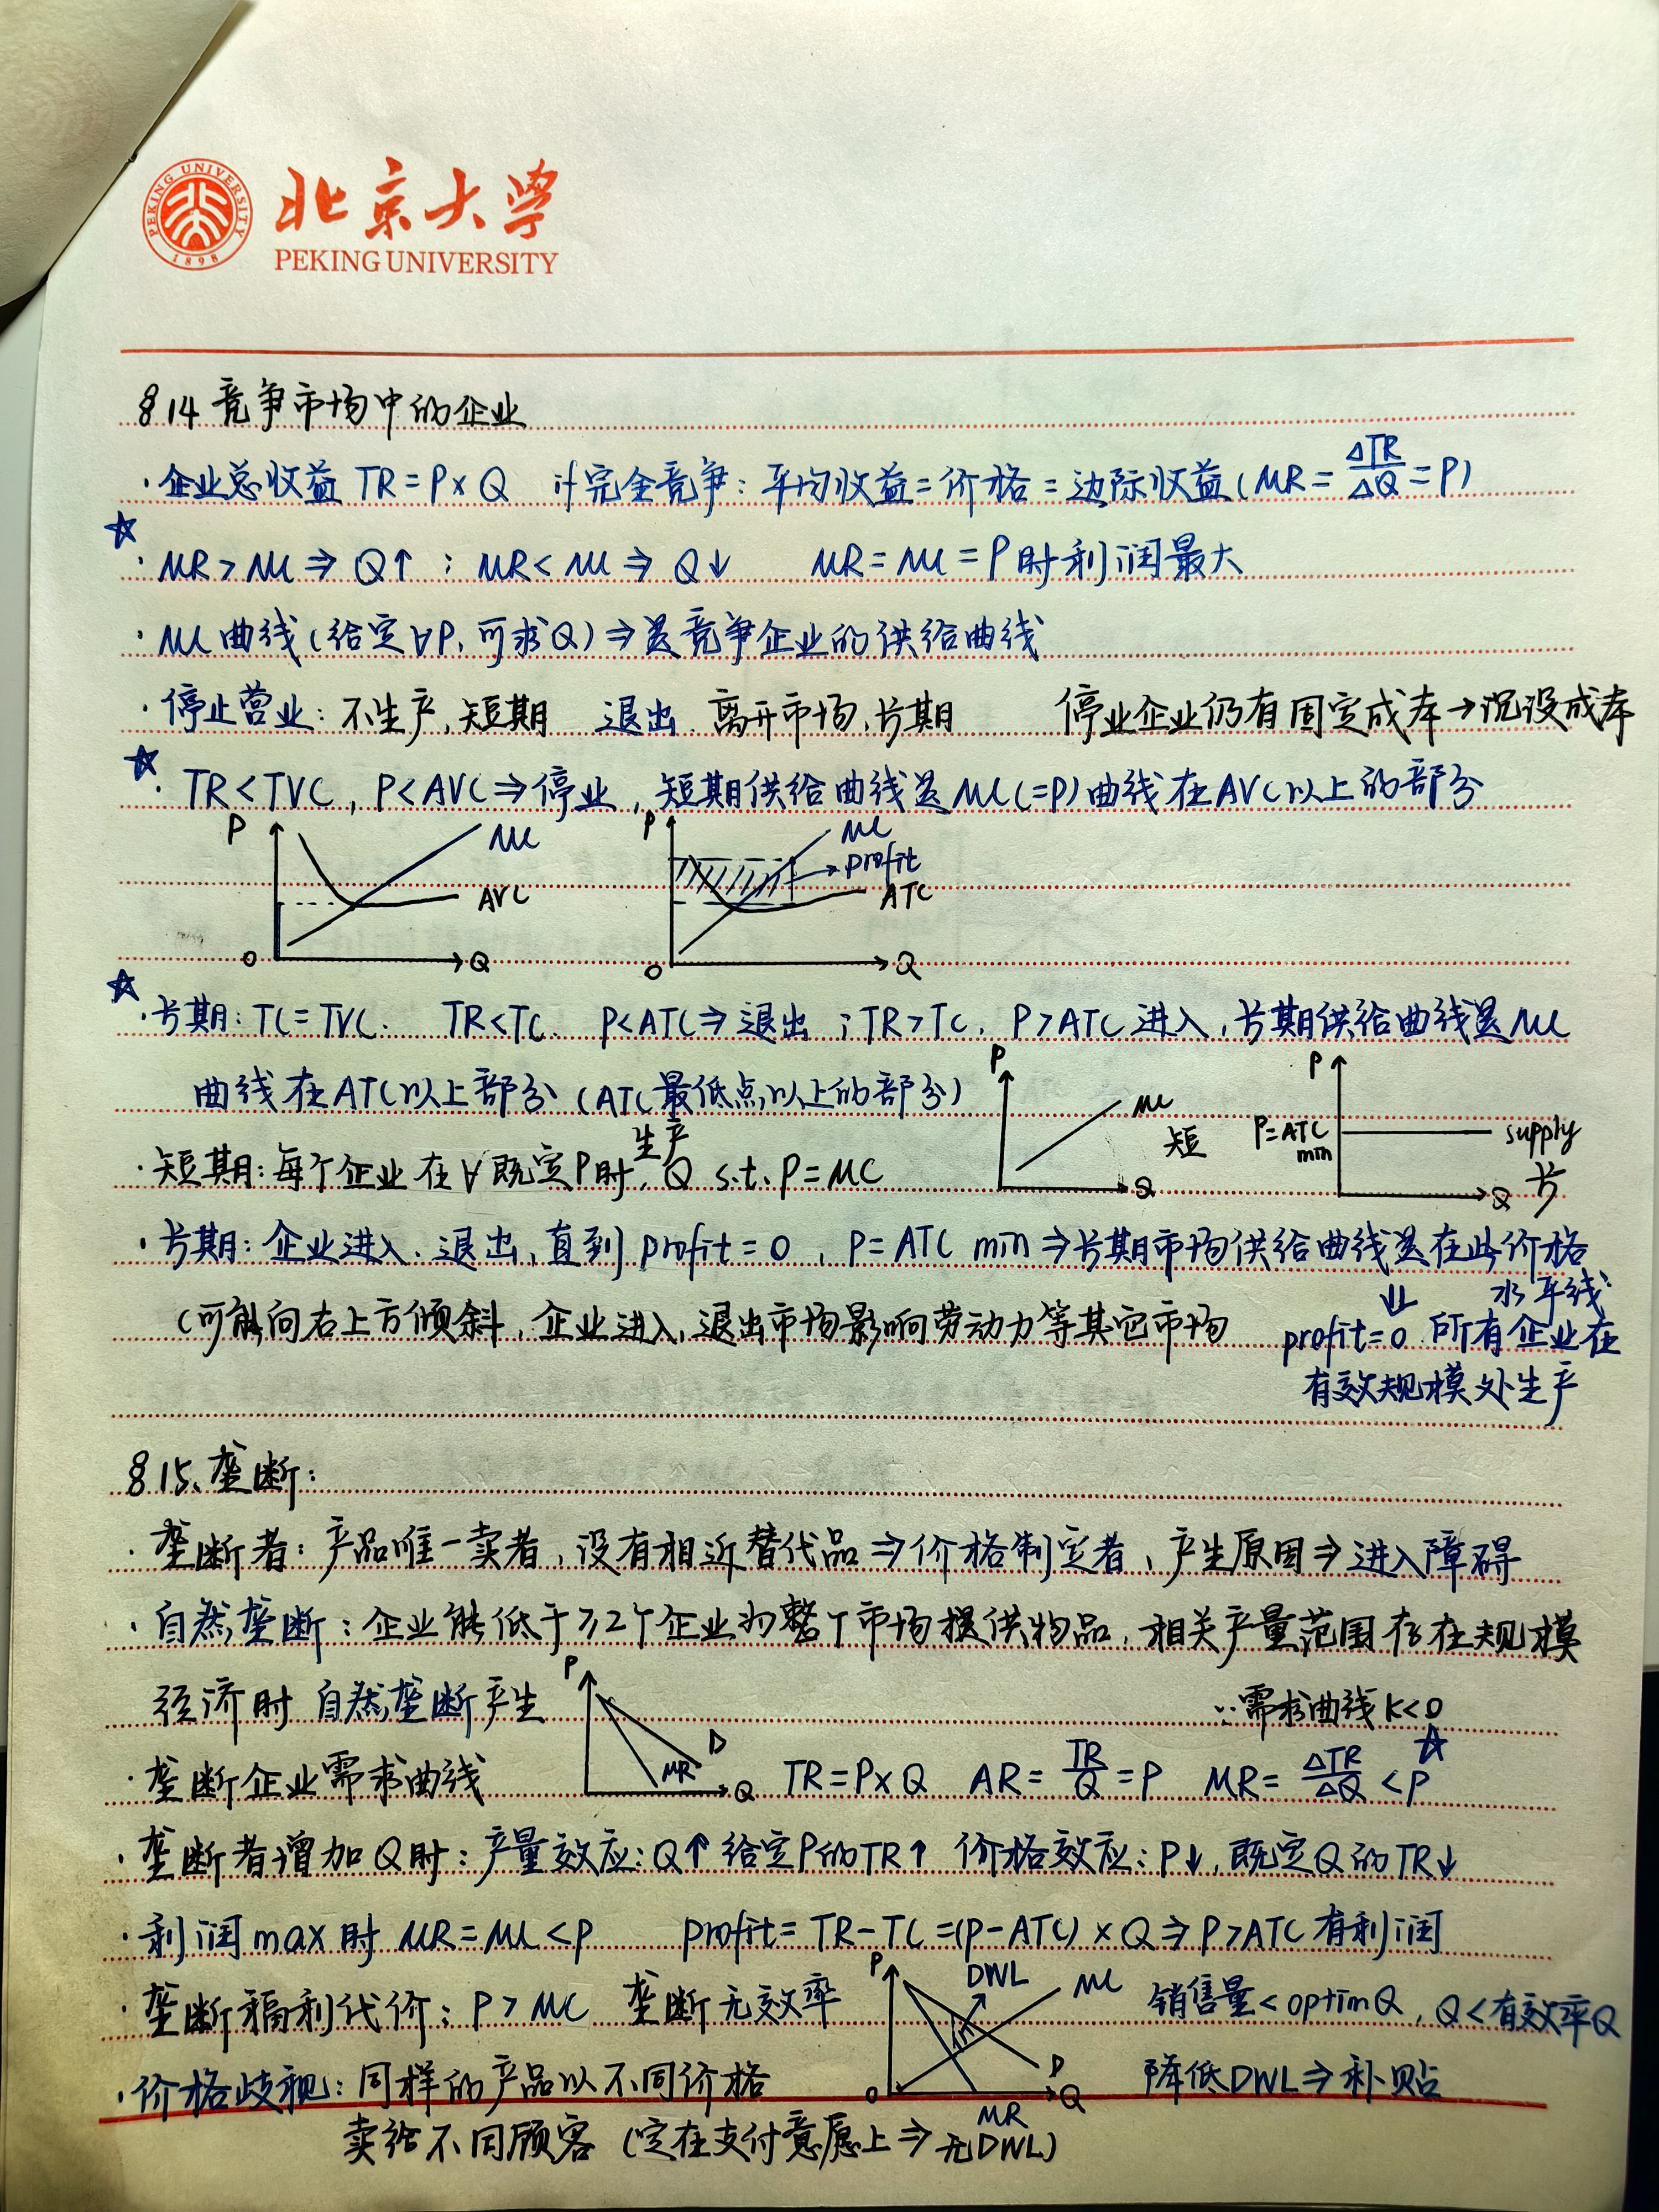 PEKING UNIVERSITY 1898
北京大学
PEKING UNIVERSITY
§14 竞争市场中的企业
·企业总收益 TR=P×Q if完全竞争:平均收益=价格=边际收益(MR=ΔTR/ΔQ=P)
☆
·MR>MC⇒Q↑;MR<MC⇒Q↓ MR=MC=P时利润最大
·MC曲线(给定∀P,可求Q)⇒是竞争企业的供给曲线
·停止营业:不生产,短期 退出:离开市场,长期 停业企业仍有固定成本→沉没成本
☆
·TR<TVC,P<AVC⇒停业,短期供给曲线是MC(=P)曲线在AVC以上的部分
P MC AVC O Q
P MC profit ATC O Q
☆
·长期:TC=TVC. TR<TC. P<ATC⇒退出;TR>TC. P>ATC进入,长期供给曲线是MC
曲线在ATC以上部分(ATC最低点以上的部分)
P MC 短 Q
P P=ATC min supply 长 Q
·短期:每个企业在∀既定P时,生产Q s.t. P=MC
·长期:企业进入、退出,直到profit=0,P=ATC min⇒长期市场供给曲线是在此价格
水平线
(可能向右上方倾斜,企业进入,退出市场影响劳动力等其它市场
⇓
profit=0 所有企业在
有效规模处生产
§15、垄断:
·垄断者:产品唯一卖者,没有相近替代品⇒价格制定者,产生原因⇒进入障碍
·自然垄断:企业能低于≥2个企业为整个市场提供物品,相关产量范围存在规模
经济时 自然垄断产生
∵需求曲线K<0
☆
·垄断企业需求曲线 P D MR Q TR=P×Q AR=TR/Q=P MR=ΔTR/ΔQ<P
·垄断者增加Q时:产量效应:Q↑给定P的TR↑ 价格效应:P↓,既定Q的TR↓
·利润max时 MR=MC<P profit=TR-TC=(P-ATC)×Q⇒P>ATC有利润
·垄断福利代价:P>MC 垄断无效率 P DWL MC D O Q MR 销售量<optim Q,Q<有效率Q
·价格歧视:同样的产品以不同价格 降低DWL⇒补贴
卖给不同顾客(定在支付意愿上⇒无DWL)